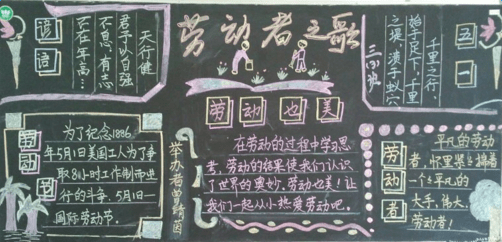 劳动者之歌
谚语
天行健
君子以自强
不息，有志
不在年高…
三(3)班
五一
千里之行，
始于足下，千里
之堤，溃于蚁穴
劳动也美
为了纪念1886
年5月1日美国工人为了争
取8小时工作制而进
行的斗争．5月1日
国际劳动节．
劳动节
举办者曾靖茵
在劳动的过程中学习思
考，劳动的结果使我们认识
了世界的奥妙．劳动也美！让
我们一起从小热爱劳动吧．
劳动者
平凡的劳动
者，怀里紧紧揣着
一个个平凡的
大手，伟大，
劳动者！